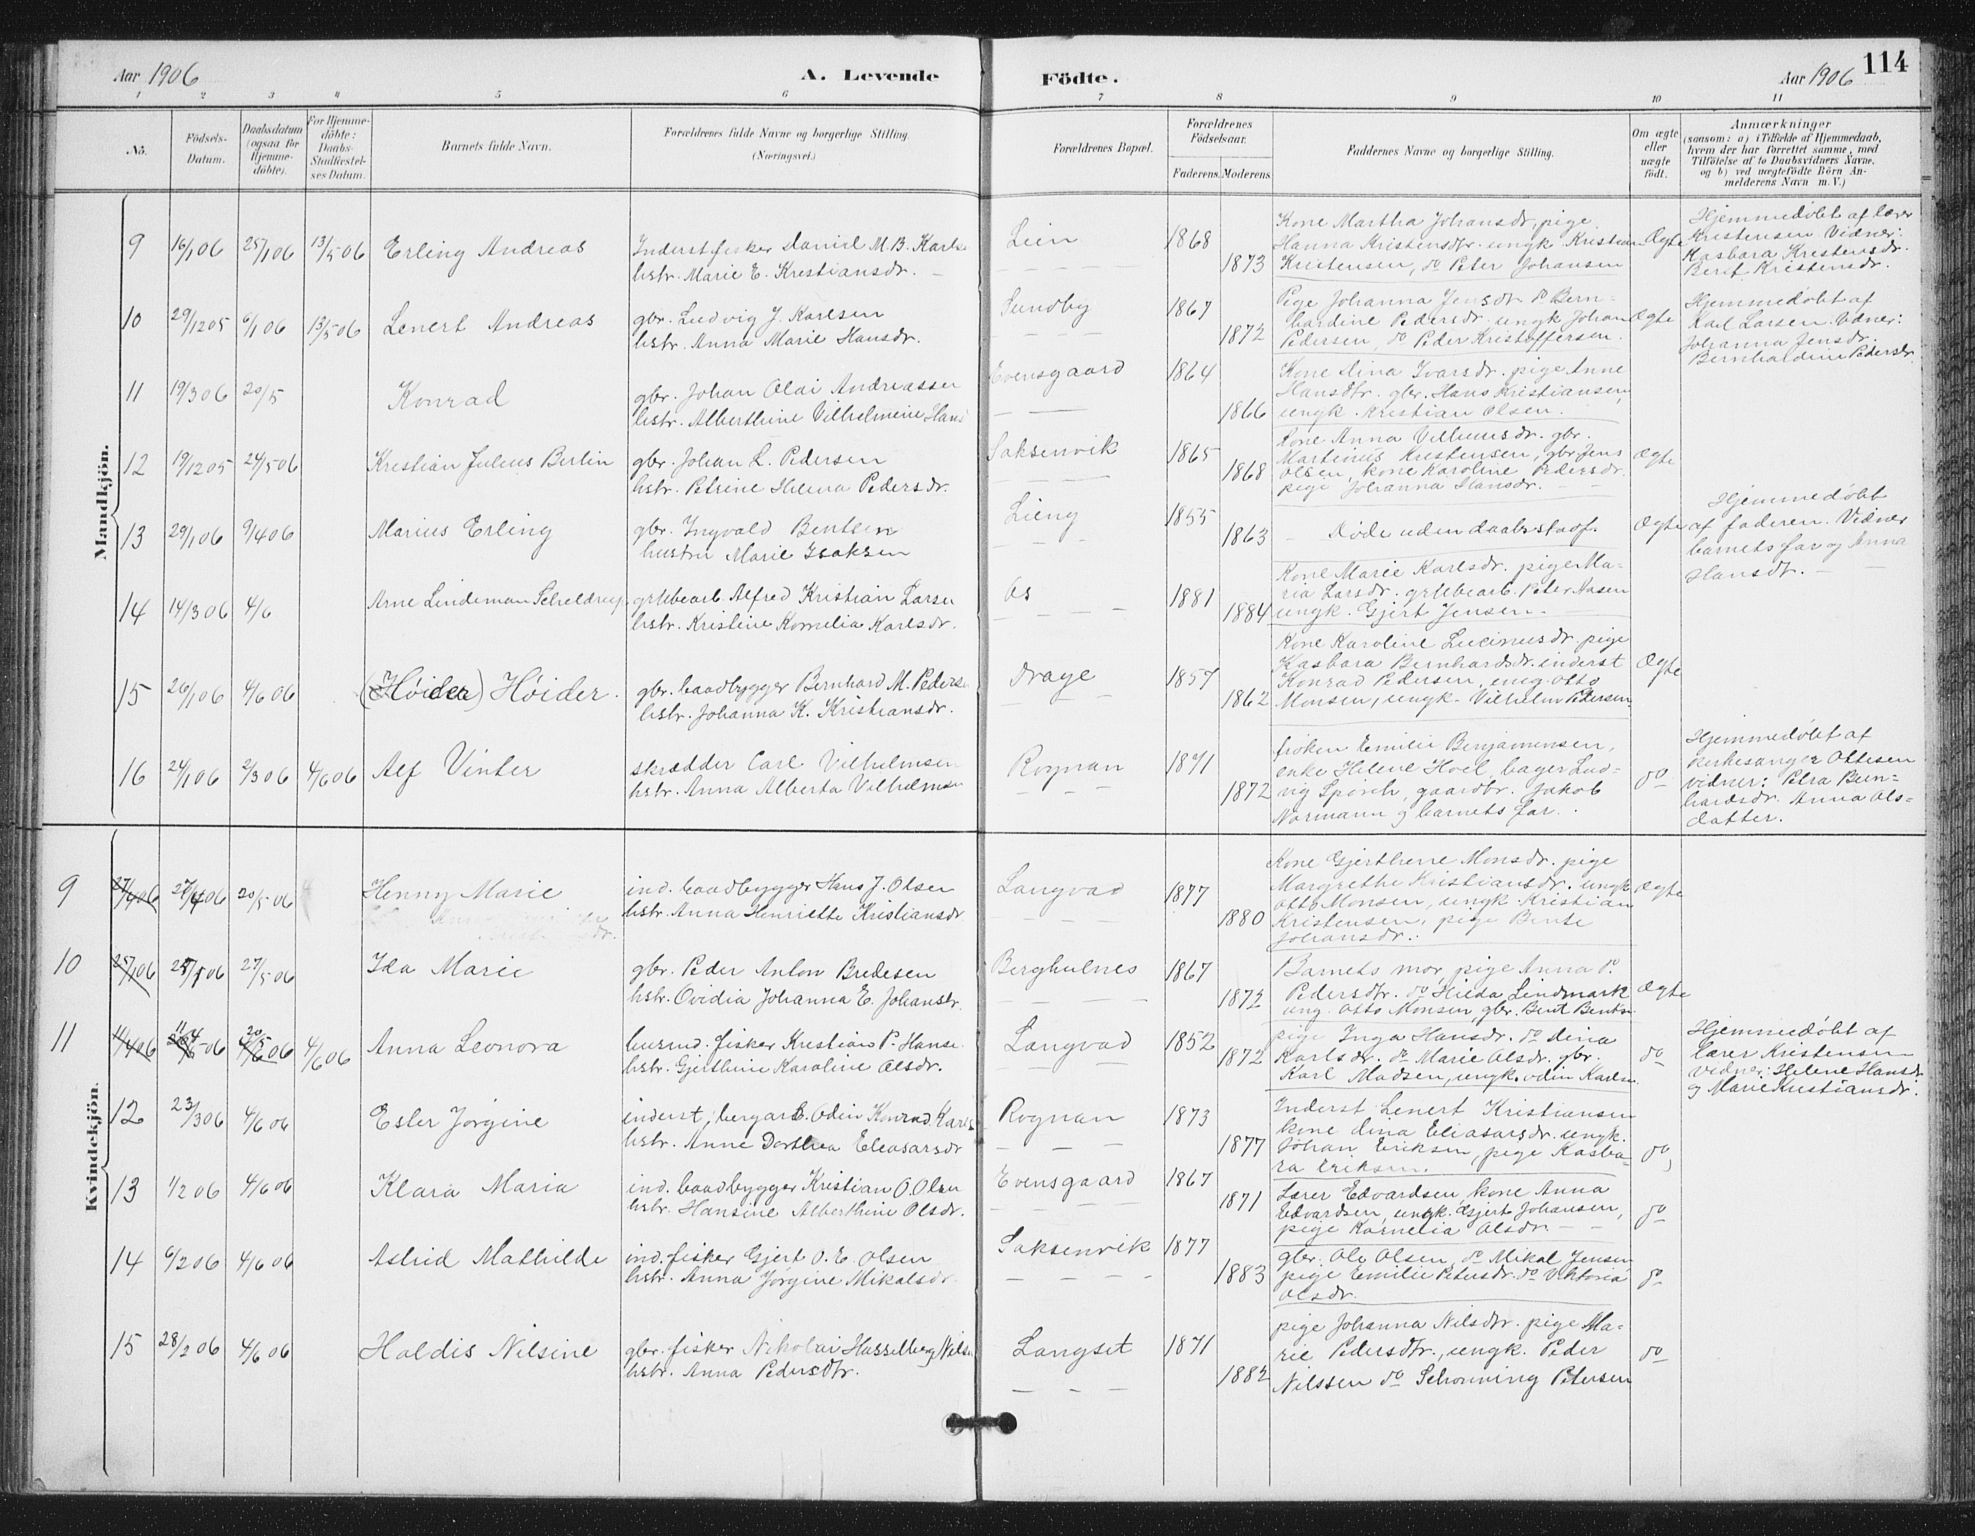 Aar 1906
A. Levende
Födte.
Aar 1906
114
1 2 3 4 5 6 7 8 9 10 11
No.
Födsels-
Datum.
Daabsdatum
(ogsaa for
Hjemme-
döbte).
For Hjemme-
döbte:
Daabs-
Stadfæstel-
ses Datum.
Barnets fulde Navn.
Forældrenes fulde Navne og borgerlige Stilling.
(Næringsvei.)
Forældrenes Bopæl.
Forældrenes
Födselsaar.
Faderens. Moderens
Faddernes Navne og borgerlige Stilling.
Om ægte
eller
uægte
födt.
Anmærkninger
(saasom: a) i Tilfælde af Hjemmedaab,
hvem der har forrettet samme, med
Tilföielse af to Daabsvidners Navne,
og b) ved uægtefödte Börn An-
melderens Navn m. V.)
Mandkjön.
9 16/1 06 25/1 06 13/5 06 Erling Andreas
Inderst fisker Daniel M. B. Karls
hstr. Marie E. Krestiansdr. –
Lein
1868
1873
Kone Martha Johansdr, pige
Hanna Kristensdtr. ungk Kristian
Kristensen, do Peter Johansen
Ægte
Hjemmedøbt af lærer
Kristensen Vidner:
Kasbara Krestensdr.
Berit Kristensdr.
10 29/12 05 6/1 06 13/5 06 Lenert Andreas
gbr. Ludvig J. Karlsen
hstr. Anna Marie Hansdr.
Sundby
1867
1872
Pige Johanna Jensdtr do Bern-
hardine Pedersdr. ungk Johan
Pedersen, do Peder Kristoffersen.
Ægte
Hjemmedøbt af
Karl Larsen. Vidner:
Johanna Jensdr.
Bernhardine Pedersdr
11 19/3 06 20/5 Konrad
gbr. Johan Olai Andreassen
hstr. Alberthine Vilhelmine Hans
Evensgaard
1864
1866
Kone Lina Ivarsdr. pige Anne
Hansdtr. gbr. Hans Kristiansen,
ungk. Kristian Olsen.
12 19/12 05 24/5 06 Krestian Julius Berlin
gbr. Johan L. Pedersen
hstr. Petrine Helena Pedersdr.
Saksenvik
1865
1868
Kone Anna Vilhumsdr. gbr.
Martinus Krestensen, gbr Jens
Olsen kone Karoline Pedersdr.
pige Johanna Hansdr.
Ægte
13 29/1 06 9/4 06 Marius Erling
gbr. Ingvald Bentsen
hustru Marie Isaksen
Lieng
1855
1863
– Døde uden daabsstadf.
Ægte
Hjemmedøbt
af faderen. Vidner
barnets far og Anna
Hansdt.
14 14/3 06 4/6 Arne Lindeman Scheldrup
grubearb. Alfred Kristian Larsen
hstr. Kristine Kornelia Karlsdr.
Os
1881
1884
Kone Marie Karlsdr. pige Ma-
ria Larsdr. grubearb. Peter Aasen
ungk. Gjert Jensen.
15 26/1 06 4/6 06 (Høider) Høider.
gbr. baadbygger Bernhard M. Peders
hstr. Johanna K. Kristiansdr.
Drage
1857
1862
Kone Karoline Lucinusdr. pige
Kasbara Bernhardsdr. inderst
Konrad Pedersen, ung. Otto
Monsen, ungk. Vilhelm Pedersen
Ægte
16 24/1 06 2/3 06 4/6 06 Alf Vinter
skrædder Carl Vilhelmsen
hstr. Anna Alberta Vilhelmsen
Rognan
1871
1872
frøken Emilie Benjaminsen,
enke Helene Hoel, bager Lud-
vig Sporch, gaardbr. Jakob
Normann og barnets far.
do
Hjemmedøbt af
kirkesanger Ottesen
vidner: Petra Bern-
hardsdr. Anna Ols-
datter.
Kvindekjön.
9 27/4 06 27/4 06 20/5 06 Henny Marie
ind. baadbygger Hans J. Olsen
hstr. Anna Henriette Kristiansdr
Langvad
1877
1880
Kone Gjerthine Monsdr. pige
Margrethe Kristiansdr. ungk
Otto Monsen, ungk. Kristian
Kristensen, pige Bente
Johansdr.
Ægte
10 25/1 06 25/1 06 27/5 06 Ida Marie
gbr. Peder Anton Bredesen
hstr. Ovidia Johanna E. Johansdr.
Berghulnes
1867
1872
Barnets mor, pige Anna P.
Pedersdtr. do Hilda Lindmark
ung. Otto Monsen, gbr. Bent Bentsen
Ægte
11 14/4 06 11/4 06 20/5 06 4/6 06 Anna Leonora
husmd. fisker Kristian P. Hanse
hstr. Gjerthine Karoline Olsdr.
Langvad
1852
1872
pige Inga Hansdr. do Dina
Karlsdr. do Marie Olsdr. gbr.
Karl Madsen, ungk. Odin Karlsen
do
Hjemmedøbt af
lærer Kristensen
vidner: Helene Hansdr
og Marie Kristiansdr.
12 23/3 06 4/6 06 Ester Jørgine
inderst, bergarb. Odin Konrad Karls
hstr. Anne Dorthea Eleasarsdr
Rognan
1873
1877
Inderst Lenert Kristiansen
kone Dina Eliasarsdr. ungk.
Johan Eriksen, pige Kasba-
ra Eriksen.
do
13 1/2 06 4/6 06 Klara Maria
ind. baadbygger Kristian O. Olsen
hstr. Hansine Alberthine Olsdr.
Evensgaard
1867
1871
Lærer Edvardsen, kone Anna
Edvardsen, ungk. Gjert Johansen,
pige Kornelia Olsdr
do
14 6/2 06 4/6 06 Astrid Mathilde
ind. fisker Gjert O. E. Olsen
hstr. Anna Jørgine Mikalsdr
Saksenvik
1877
1883
gbr. Ole Olsen, do Mikal Jensen
pige Emilie Petersdr. do Viktoria
Olsdr.
do
15 28/2 06 4/6 06 Haldis Nilsine
gbr. fisker Nikolai Hasselberg Nilse
hstr. Anna Pedersdtr.
Langset
1871
1882
pige Johanna Nilsdtr. pige Ma-
rie Pedersdtr., ungk. Peder
Nilssen do Schonning Petersen
do